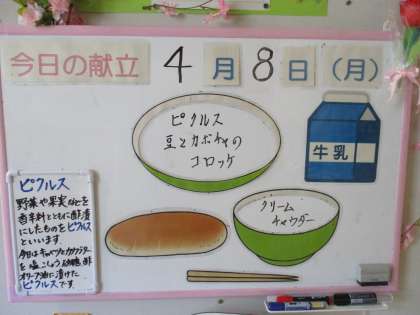 今日の献立 4月8日(月)
ピクルス
豆とカボチャの
コロッケ
牛乳
クリーム
チャウダー
ピクルス
野菜や果実などを
香辛料とともに酢漬
にしたものをピクルス
といいます。
今日はキャベツとカリフラワー
を塩こしょう 砂糖 酢
オリーブ油に漬けた
ピクルスです